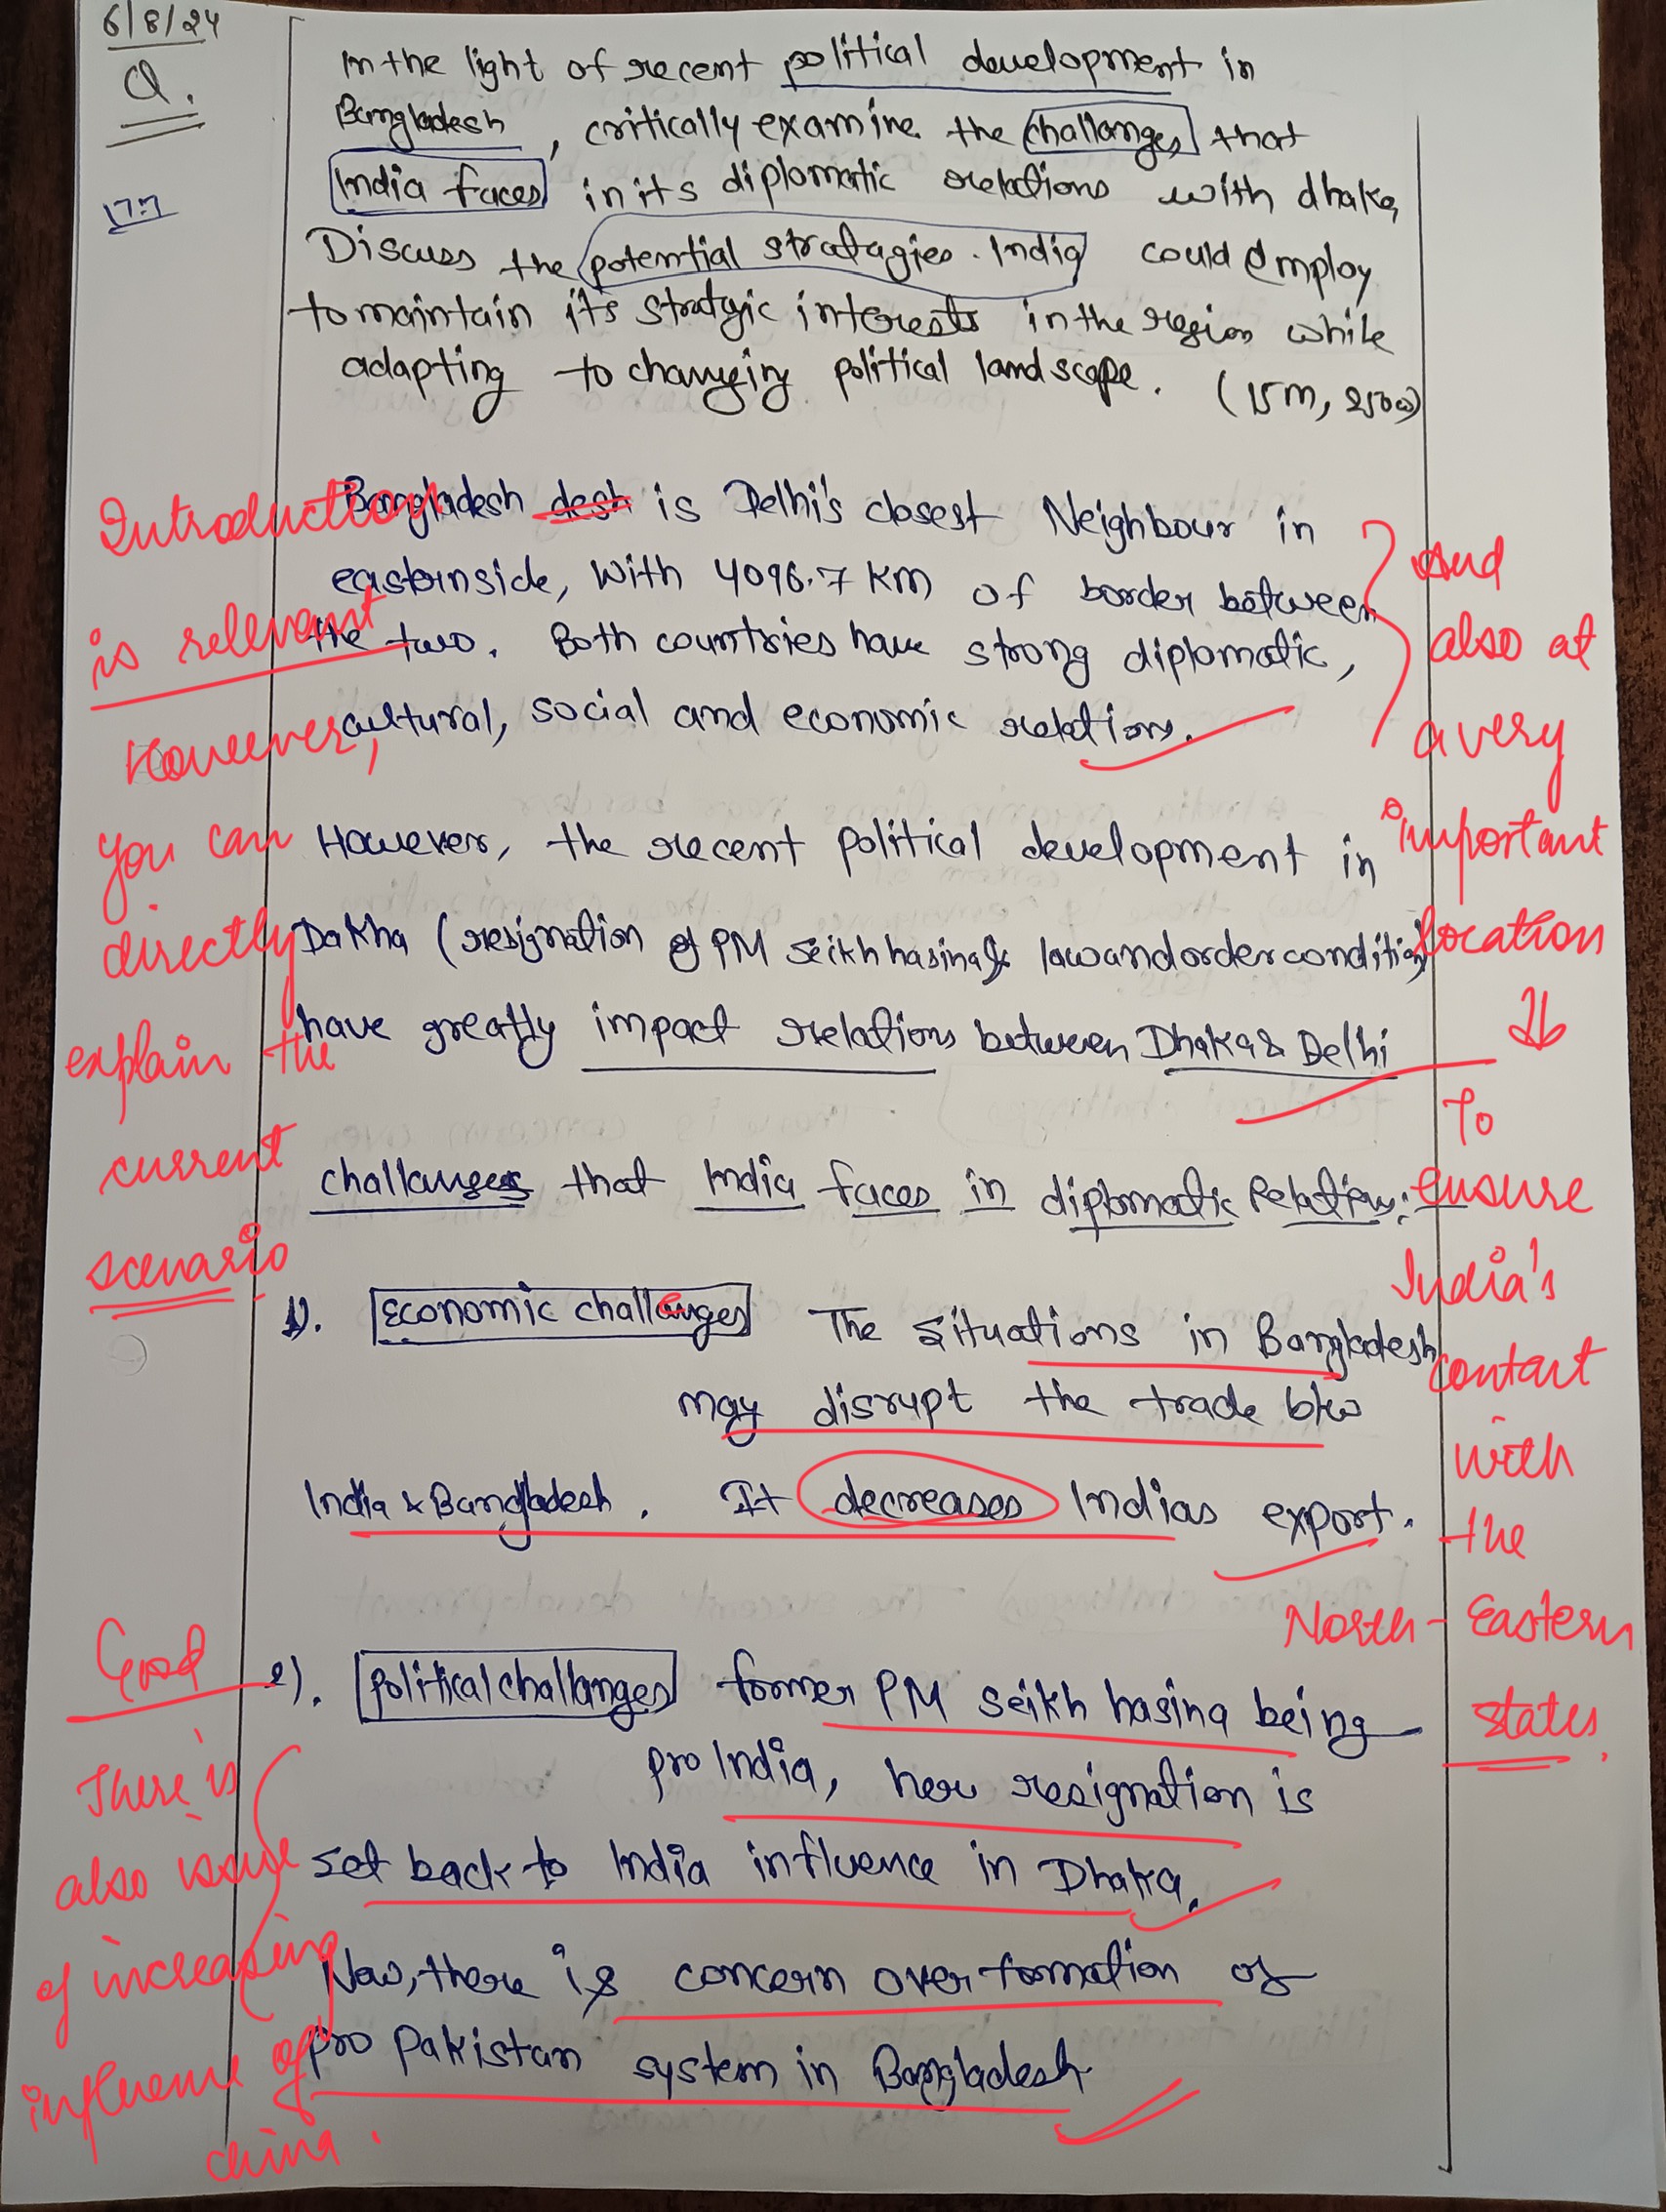 6/8/24
Q.
17:7
In the light of recent political development in
Bangladesh, critically examine the challanges that
India faces in its diplomatic relations with dhaka,
Discuss the potential stratagies. India could employ
to maintain it's stratgic interests in the region while
adapting to changing political landscape. (15m, 250w)
Bangladesh desh is Delhi's closest Neighbour in
eastern side, with 4096.7 KM of border between
the two. Both countries have strong diplomatic,
cultural, social and economic relations.
However, the recent political development in
Dakha (resignation of PM Seikh hasina & law and order condition)
have greatly impact relations between Dhaka & Delhi
challanges that India faces in diplomatic Relations:-
1). Economic challenges The situations in Bangladesh
may disrupt the trade b/w
India & Bangladesh. It decreases Indias export.
2). Political challanges former PM Seikh hasina being
pro India, her resignation is
set back to India influence in Dhaka.
Now, there is concern over formation of
pro Pakistan system in Bangladesh.
Introduction
is relevant
However,
you can
directly
explain the
current
scenario.
And
also at
a very
important
location
To
ensure
India's
contact
with
the
North-Eastern
states.
Good
There is
also issue
of increasing
influence of
china.